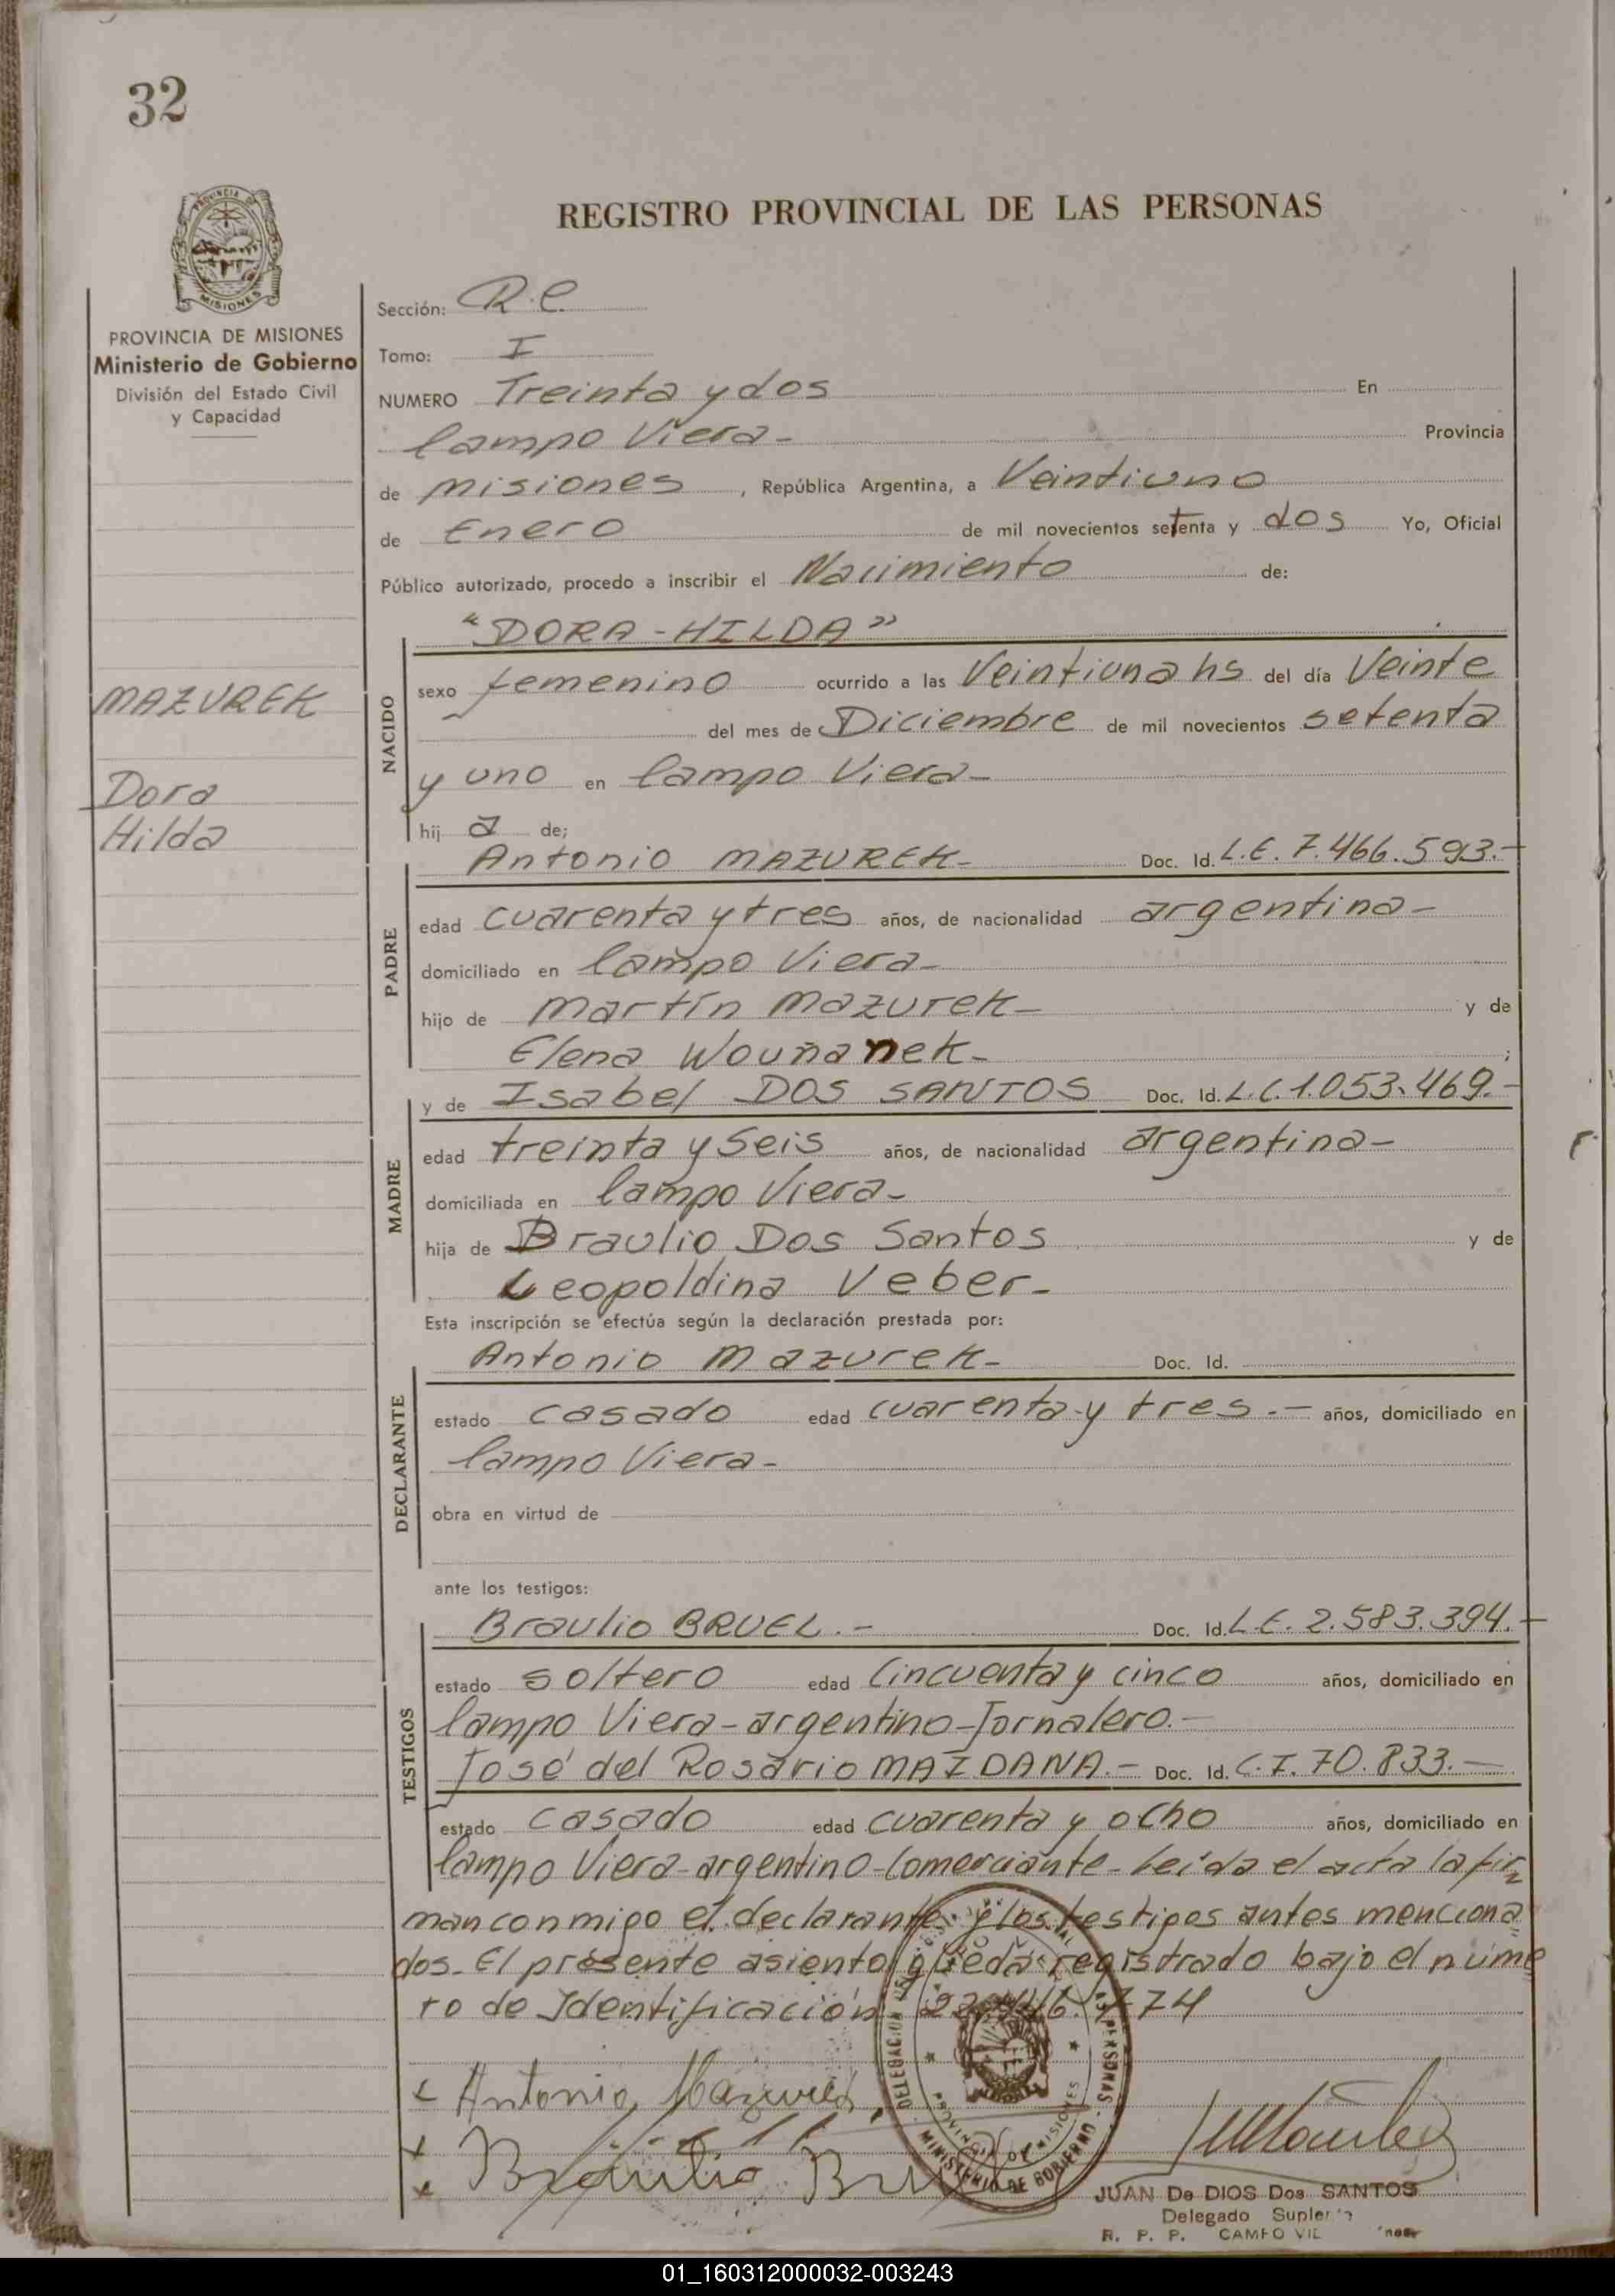 32
REGISTRO PROVINCIAL DE LAS PERSONAS
PROVINCIA DE MISIONES
Ministerio de Gobierno
División del Estado Civil
y Capacidad
MAZUREK
Dora
Hilda
Sección: R.C.
Tomo: I
NUMERO Treinta y dos En
Campo Viera- Provincia
de Misiones, República Argentina, a Veintiuno
de Enero de mil novecientos setenta y dos Yo, Oficial
Público autorizado, procedo a inscribir el Nacimiento de:
"DORA-HILDA"
NACIDO
sexo femenino ocurrido a las Veintiuna hs del día Veinte
del mes de Diciembre de mil novecientos setenta
y uno en Campo Viera-
hij a de;
Antonio MAZUREK- Doc. Id. L.E. 7.466.593.-
PADRE
edad cuarenta y tres años, de nacionalidad argentina-
domiciliado en Campo Viera-
hijo de Martín Mazurek- y de
Elena Wouñanek- ;
y de Isabel DOS SANTOS Doc. Id. L.C. 1.053.469.-
MADRE
edad treinta y seis años, de nacionalidad argentina-
domiciliada en Campo Viera-
hija de Braulio Dos Santos y de
Leopoldina Veber-
Esta inscripción se efectúa según la declaración prestada por:
Antonio Mazurek- Doc. Id.
DECLARANTE
estado casado edad cuarenta y tres.- años, domiciliado en
Campo Viera-
obra en virtud de
ante los testigos:
Braulio BRUEL.- Doc. Id. L.E. 2.583.394.-
TESTIGOS
estado soltero edad Cincuenta y cinco años, domiciliado en
Campo Viera-argentino-Jornalero.-
José del Rosario MAIDANA.- Doc. Id. C.I. 70.833.-
estado casado edad cuarenta y ocho años, domiciliado en
Campo Viera-argentino-Comerciante-Leída el acta la fir
man conmigo el declarante y los testigos antes menciona
dos. El présente asiento queda registrado bajo el núme
ro de Identificación
Antonio Mazurek
Braulio
DELEGACION
PERSONAS
PROVINCIA DE MISIONES
MINISTERIO DE GOBIERNO
JUAN De DIOS Dos SANTOS
Delegado
R. P. P. CAMPO
01_160312000032-003243